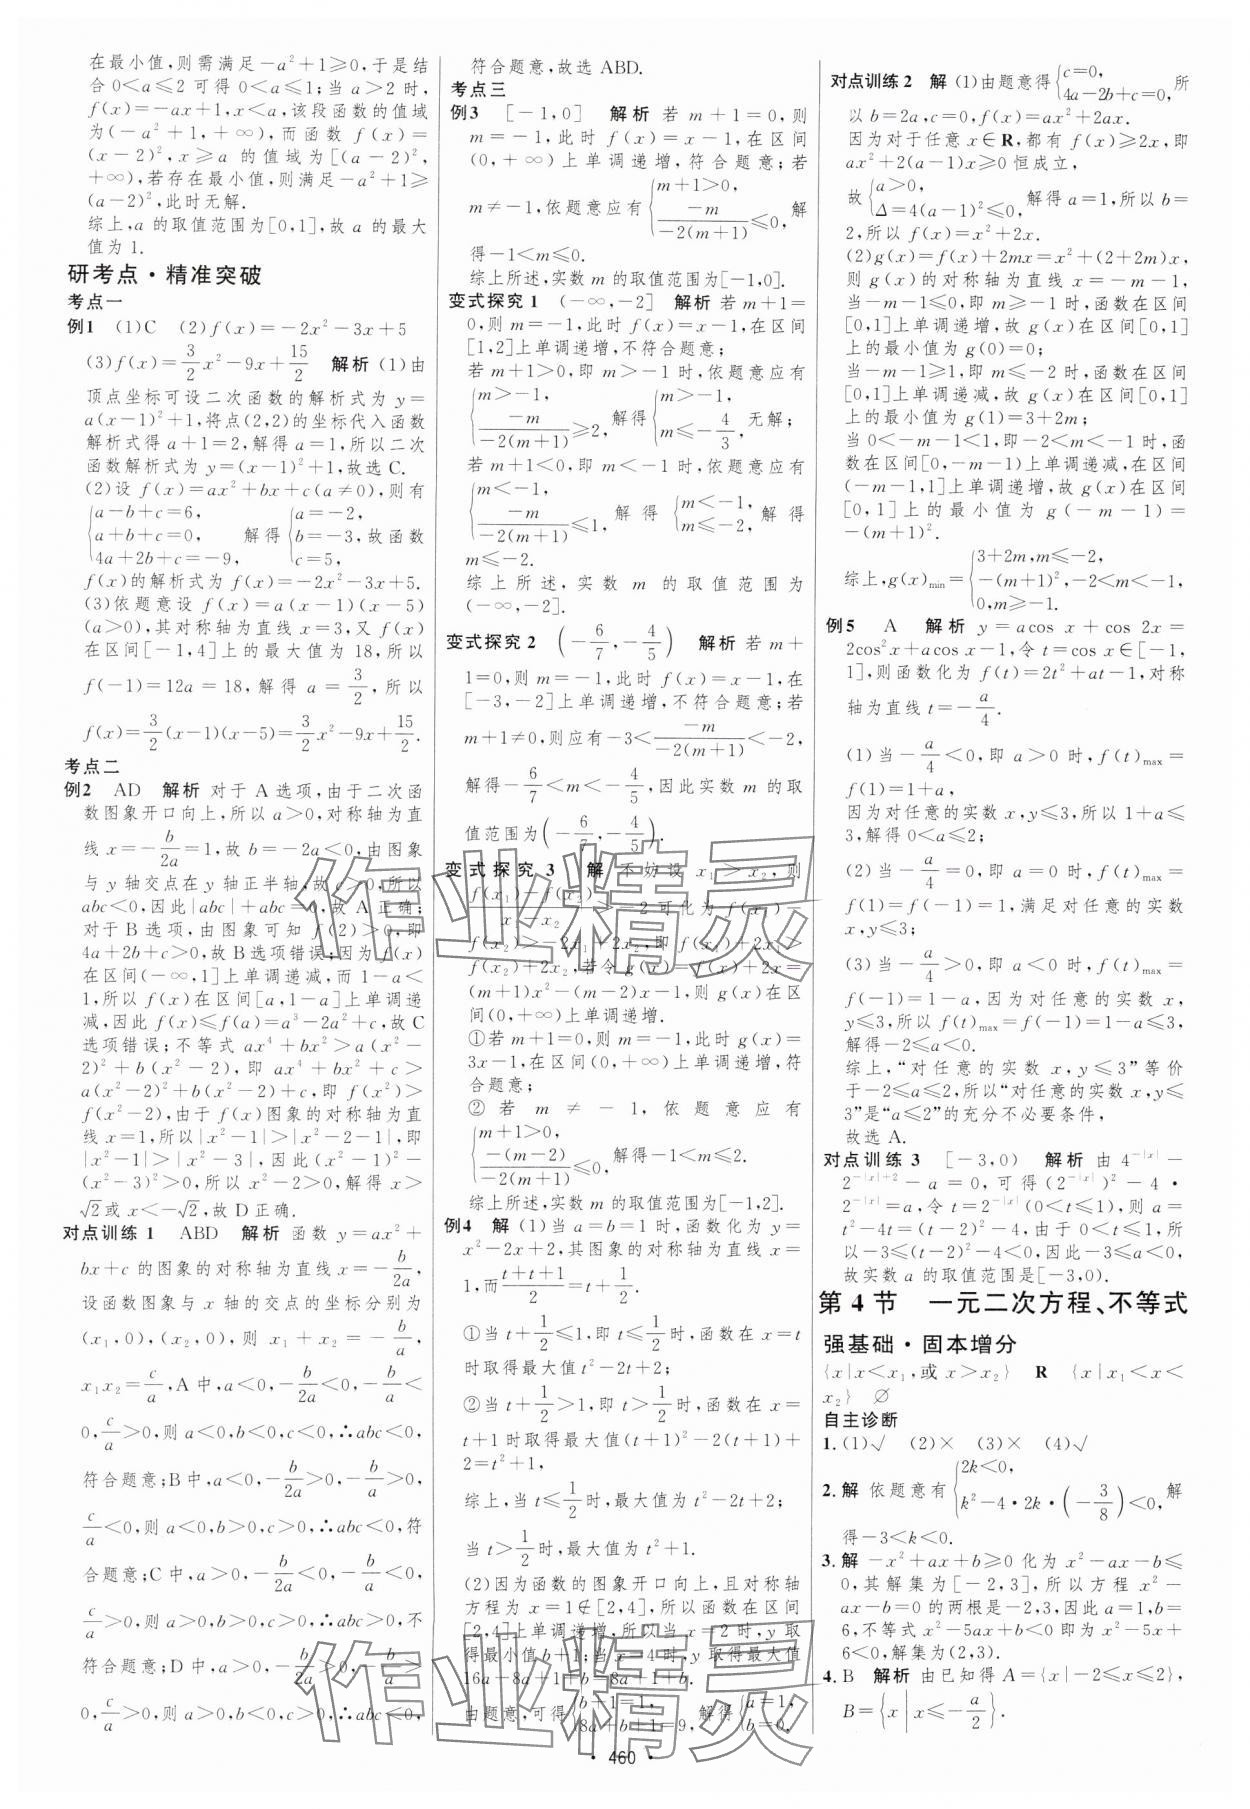 在最小值,则需满足-a²+1≥0,于是结
合0<a≤2 可得 0<a≤1;当 a>2 时,
f(x)=-ax+1,x<a,该段函数的值域
为(-a²+1,+∞),而函数 f(x)=
(x-2)²,x≥a 的值域为[(a-2)²,
+∞),若存在最小值,则满足-a²+1≥
(a-2)²,此时无解.
综上,a 的取值范围为[0,1],故 a 的最大
值为 1.
研考点·精准突破
考点一
例1 (1)C (2)f(x)=-2x²-3x+5
(3)f(x)=3/2x²-9x+15/2 解析 (1)由
顶点坐标可设二次函数的解析式为 y=
a(x-1)²+1,将点(2,2)的坐标代入函数
解析式得 a+1=2,解得 a=1,所以二次
函数解析式为 y=(x-1)²+1,故选 C.
(2)设 f(x)=ax²+bx+c(a≠0),则有
{a-b+c=6, a+b+c=0, 4a+2b+c=-9, 解得 {a=-2, b=-3, c=5, 故函数
f(x)的解析式为 f(x)=-2x²-3x+5.
(3)依题意设 f(x)=a(x-1)(x-5)
(a>0),其对称轴为直线 x=3,又 f(x)
在区间[-1,4]上的最大值为 18,所以
f(-1)=12a=18,解得 a=3/2,所以
f(x)=3/2(x-1)(x-5)=3/2x²-9x+15/2.
考点二
例2 AD 解析 对于 A 选项,由于二次函
数图象开口向上,所以 a>0,对称轴为直
线 x=-b/2a=1,故 b=-2a<0,由图象
与 y 轴交点在 y 轴正半轴,故 c>0,所以
abc<0,因此|abc|+abc=0,故 A 正确;
对于 B 选项,由图象可知 f(2)>0,即
4a+2b+c>0,故 B 选项错误;因为 f(x)
在区间(-∞,1]上单调递减,而 1-a<
1,所以 f(x)在区间[a,1-a]上单调递
减,因此 f(x)≤f(a)=a³-2a²+c,故 C
选项错误;不等式 ax⁴+bx²>a(x²-
2)²+b(x²-2),即 ax⁴+bx²+c>
a(x²-2)²+b(x²-2)+c,即 f(x²)>
f(x²-2),由于 f(x)图象的对称轴为直
线 x=1,所以|x²-1|>|x²-2-1|,即
|x²-1|>|x²-3|,因此(x²-1)²-
(x²-3)²>0,所以 x²-2>0,解得 x>
√2或 x<-√2,故 D 正确.
对点训练 1 ABD 解析 函数 y=ax²+
bx+c 的图象的对称轴为直线 x=-b/2a,
设函数图象与 x 轴的交点的坐标分别为
(x₁,0),(x₂,0),则 x₁+x₂=-b/a,
x₁x₂=c/a,A 中,a<0,-b/2a<0,-b/a<
0,c/a>0,则 a<0,b<0,c<0,∴abc<0,
符合题意;B 中,a<0,-b/2a>0,-b/a>0,
c/a<0,则 a<0,b>0,c>0,∴abc<0,符
合题意;C 中,a>0,-b/2a<0,-b/a<0,
c/a>0,则 a>0,b>0,c>0,∴abc>0,不
符合题意;D 中,a>0,-b/2a>0,-b/a>
0,c/a>0,则 a>0,b<0,c>0,∴abc<0,
符合题意,故选 ABD.
考点三
例3 [-1,0] 解析 若 m+1=0,则
m=-1,此时 f(x)=x-1,在区间
(0,+∞)上单调递增,符合题意;若
m≠-1,依题意应有 {m+1>0, -m/-2(m+1)≤0, 解
得-1<m≤0.
综上所述,实数 m 的取值范围为[-1,0].
变式探究 1 (-∞,-2] 解析 若 m+1=
0,则 m=-1,此时 f(x)=x-1,在区间
[1,2]上单调递增,不符合题意;
若 m+1>0,即 m>-1 时,依题意应有
{m>-1, -m/-2(m+1)≥2, 解得 {m>-1, m≤-4/3, 无解;
若 m+1<0,即 m<-1 时,依题意应有
{m<-1, -m/-2(m+1)≤1, 解得 {m<-1, m≤-2, 解得
m≤-2.
综上所述,实数 m 的取值范围为
(-∞,-2].
变式探究 2 (-6/7,-4/5) 解析 若 m+
1=0,则 m=-1,此时 f(x)=x-1,在
[-3,-2]上单调递增,不符合题意;若
m+1≠0,则应有-3<-m/-2(m+1)<-2,
解得-6/7<m<-4/5,因此实数 m 的取
值范围为(-6/7,-4/5).
变式探究 3 解 不妨设 x₁>x₂,则
f(x₁)-f(x₂)/x₁-x₂>-2 可化为 f(x₁)-
f(x₂)>-2x₁+2x₂,即 f(x₁)+2x₁>
f(x₂)+2x₂,若令 g(x)=f(x)+2x=
(m+1)x²-(m-2)x-1,则 g(x)在区
间(0,+∞)上单调递增.
①若 m+1=0,则 m=-1,此时 g(x)=
3x-1,在区间(0,+∞)上单调递增,符
合题意;
②若 m≠-1,依题意应有
{m+1>0, -(m-2)/-2(m+1)≤0, 解得-1<m≤2.
综上所述,实数 m 的取值范围为[-1,2].
例4 解 (1)当 a=b=1 时,函数化为 y=
x²-2x+2,其图象的对称轴为直线 x=
1,而t+t+1/2=t+1/2.
①当 t+1/2≤1,即 t≤1/2时,函数在 x=t
时取得最大值 t²-2t+2;
②当 t+1/2>1,即 t>1/2时,函数在 x=
t+1 时取得最大值(t+1)²-2(t+1)+
2=t²+1,
综上,当 t≤1/2时,最大值为 t²-2t+2;
当 t>1/2时,最大值为 t²+1.
(2)因为函数的图象开口向上,且对称轴
方程为 x=1∉[2,4],所以函数在区间
[2,4]上单调递增,所以当 x=2 时,y 取
得最小值 b+1;当 x=4 时,y 取得最大值
16a-8a+1+b=8a+1+b.
由题意,可得{b+1=1, 8a+b+1=9, 解得{a=1, b=0.
对点训练 2 解 (1)由题意得{c=0, 4a-2b+c=0, 所
以 b=2a,c=0,f(x)=ax²+2ax.
因为对于任意 x∈R,都有 f(x)≥2x,即
ax²+2(a-1)x≥0 恒成立,
故{a>0, Δ=4(a-1)²≤0, 解得 a=1,所以 b=
2,所以 f(x)=x²+2x.
(2)g(x)=f(x)+2mx=x²+(2+2m)x,
则 g(x)的对称轴为直线 x=-m-1,
当-m-1≤0,即 m≥-1 时,函数在区间
[0,1]上单调递增,故 g(x)在区间[0,1]
上的最小值为 g(0)=0;
当-m-1≥1,即 m≤-2 时,函数在区间
[0,1]上单调递减,故 g(x)在区间[0,1]
上的最小值为 g(1)=3+2m;
当 0<-m-1<1,即-2<m<-1 时,函
数在区间[0,-m-1)上单调递减,在区间
(-m-1,1]上单调递增,故 g(x)在区间
[0,1]上的最小值为 g(-m-1)=
-(m+1)².
综上,g(x)min={3+2m,m≤-2, -(m+1)²,-2<m<-1, 0,m≥-1.
例5 A 解析 y=acos x+cos 2x=
2cos²x+acos x-1,令 t=cos x∈[-1,
1],则函数化为 f(t)=2t²+at-1,对称
轴为直线 t=-a/4.
(1)当-a/4<0,即 a>0 时,f(t)max=
f(1)=1+a,
因为对任意的实数 x,y≤3,所以 1+a≤
3,解得 0<a≤2;
(2)当-a/4=0,即 a=0 时,f(t)max=
f(1)=f(-1)=1,满足对任意的实数
x,y≤3;
(3)当-a/4>0,即 a<0 时,f(t)max=
f(-1)=1-a,因为对任意的实数 x,
y≤3,所以 f(t)max=f(-1)=1-a≤3,
解得-2≤a<0.
综上,“对任意的实数 x,y≤3”等价
于-2≤a≤2,所以“对任意的实数 x,y≤
3”是“a≤2”的充分不必要条件,
故选 A.
对点训练 3 [-3,0) 解析 由 4^{-|x|}-
2^{-|x|+2}-a=0,可得(2^{-|x|})²-4·
2^{-|x|}=a,令 t=2^{-|x|}(0<t≤1),则 a=
t²-4t=(t-2)²-4,由于 0<t≤1,所
以-3≤(t-2)²-4<0,因此-3≤a<0,
故实数 a 的取值范围是[-3,0).
第 4 节 一元二次方程、不等式
强基础·固本增分
{x|x<x₁,或 x>x₂} R {x|x₁<x<
x₂} ∅
自主诊断
1.(1)√ (2)× (3)× (4)√
2.解 依题意有{2k<0, k²-4·2k·(-3/8)<0, 解
得-3<k<0.
3.解 -x²+ax+b≥0 化为 x²-ax-b≤
0,其解集为[-2,3],所以方程 x²-
ax-b=0 的两根是-2,3,因此 a=1,b=
6,不等式 x²-5ax+b<0 即为 x²-5x+
6<0,解集为(2,3).
4.B 解析 由已知得 A={x|-2≤x≤2},
B={x|x≤-a/2}.
·460·
作业精灵
作业精灵